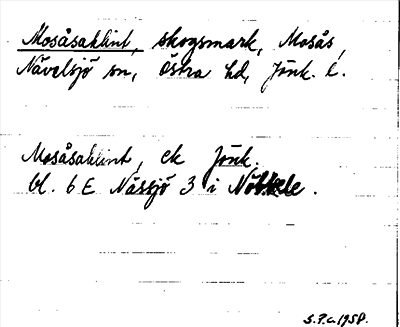 Mosåsaklint, skogsmark, Mosås,
Nävelsjö sn, Östra hd, Jönk. l.
Mosåsaklint, ek Jönk.
bl. 6 E Nässjö 3 i
S.P.c. 1958.